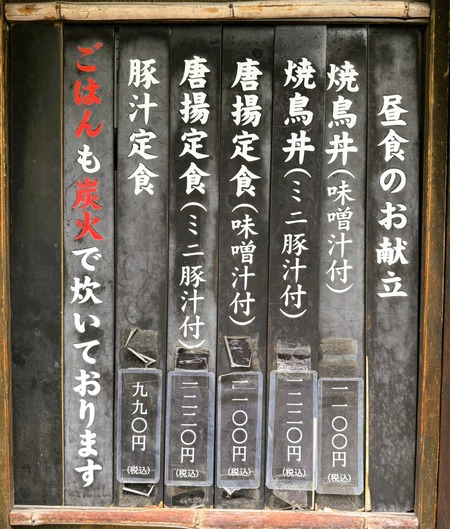 昼食のお献立
焼鳥丼(味噌汁付)
一一〇〇円
(税込)
焼鳥丼(ミニ豚汁付)
一二二〇円
(税込)
唐揚定食(味噌汁付)
一一〇〇円
(税込)
唐揚定食(ミニ豚汁付)
一二二〇円
(税込)
豚汁定食
九九〇円
(税込)
ごはんも炭火で炊いております